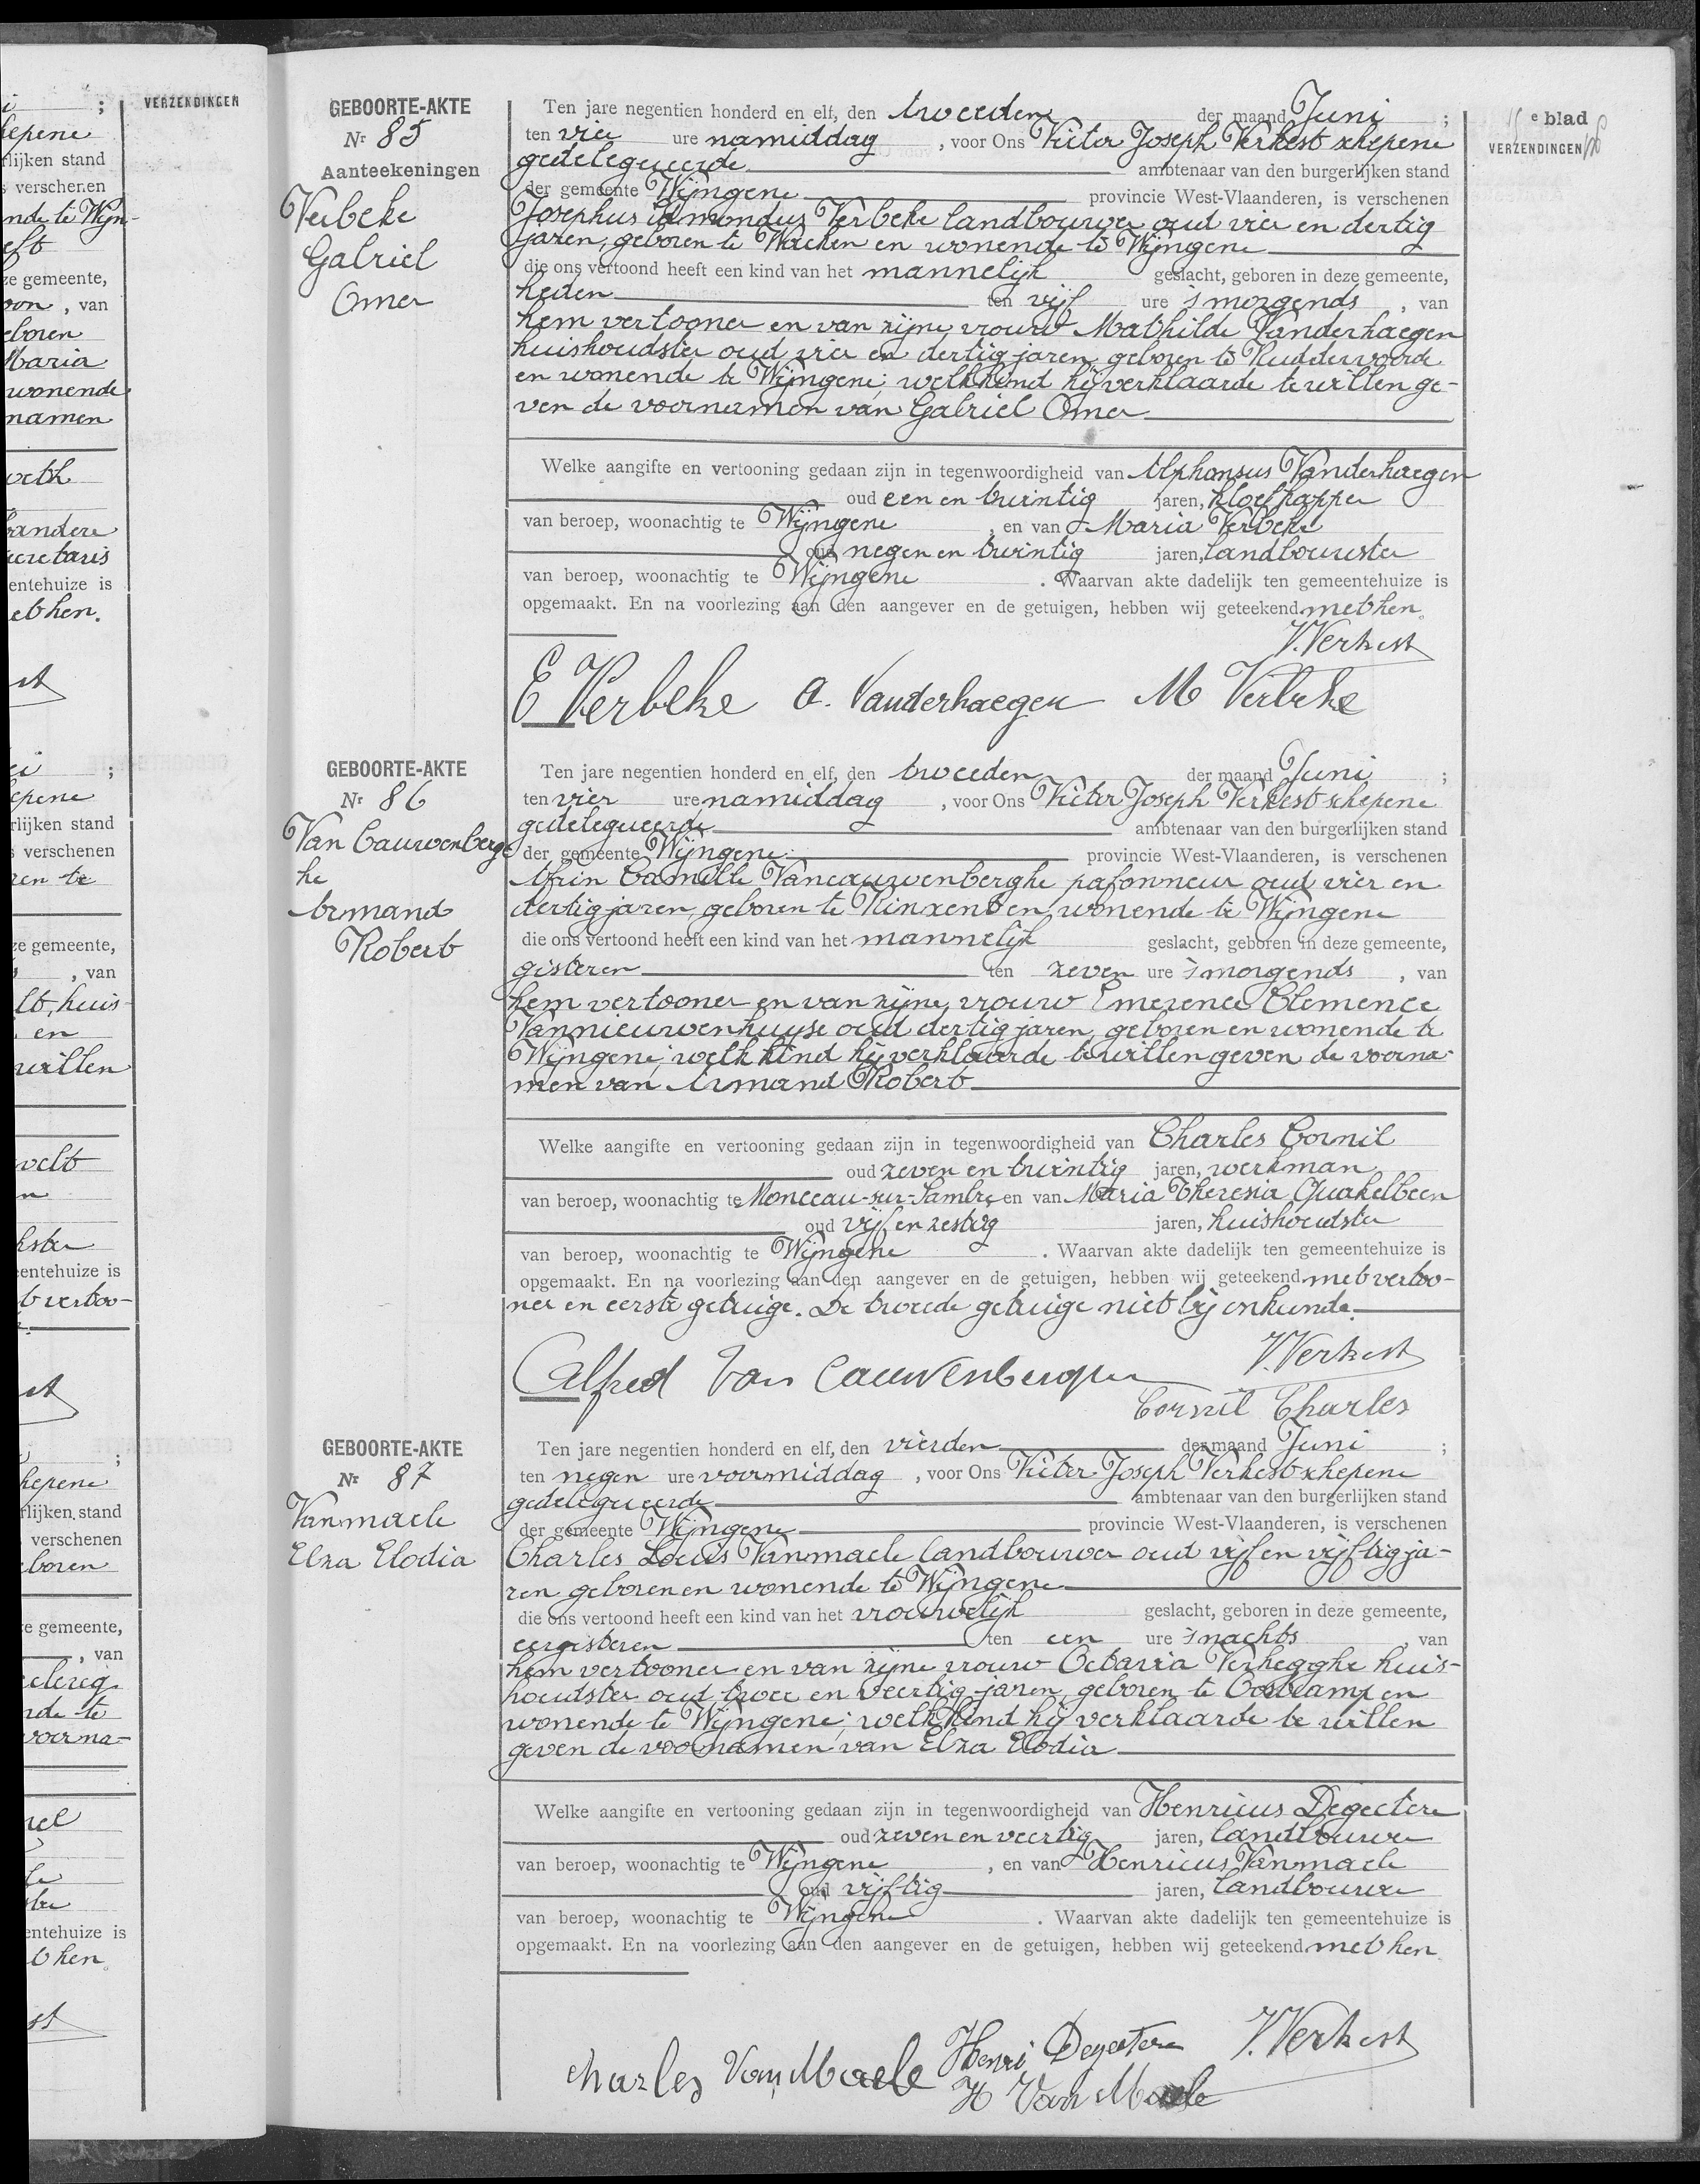 VERZENDINGEN
i ;
hepene
rlijken stand
s verschenen
nde te Wijn-
eft
ze gemeente,
oon , van
eboren
Maria
wonende
namen
oeth
bandere
ecretaris
entehuize is
et hen.
st
ei ;
epene
rlijken stand
s verschenen
ren te
ze gemeente,
, van
lt, huis-
en
willen
velt
n
kster
eentehuize is
t vertoo-
st
;
hepene
rlijken stand
verschenen
eboren
e gemeente,
, van
eclercq
nde te
voorna-
nel
le
ster
entehuize is
t hen
st
GEBOORTE-AKTE
Nr 85
Aanteekeningen
Verbeke
Gabriel
Omer
e blad
VERZENDINGEN
Ten jare negentien honderd en elf, den tweeden der maand Juni ;
ten vier ure namiddag , voor Ons Victor Joseph Verkest schepene
gedelegueerde ambtenaar van den burgerlijken stand
der gemeente Wijngene provincie West-Vlaanderen, is verschenen
Josephus Edmondus Verbeke landbouwer oud vier en dertig
jaren, geboren te Wacken en wonende te Wijngene
die ons vertoond heeft een kind van het mannelijk geslacht, geboren in deze gemeente,
heden ten vijf ure 's morgends , van
hem vertooner en van zijne vrouw Mathilde Vanderhaegen
huishoudster oud vier en dertig jaren geboren te Ruddervoorde
en wonende te Wijngene; welk kind hij verklaarde te willen ge-
ven de voornamen van Gabriel Omer
Welke aangifte en vertooning gedaan zijn in tegenwoordigheid van Alphonsus Vanderhaegen
oud een en twintig jaren, kloefkapper
van beroep, woonachtig te Wijngene , en van Maria Verbeke
oud negen en twintig jaren, landbouwster
van beroep, woonachtig te Wijngene . Waarvan akte dadelijk ten gemeentehuize is
opgemaakt. En na voorlezing aan den aangever en de getuigen, hebben wij geteekend met hen.
V. Verkest
E Verbeke a. Vanderhaegen M Verbeke
GEBOORTE-AKTE
Nr 86
Van Cauwenberg
he
Armand
Robert
Ten jare negentien honderd en elf, den tweeden der maand Juni ;
ten vier ure namiddag , voor Ons Victor Joseph Verkest schepene
gedelegueerde ambtenaar van den burgerlijken stand
der gemeente Wijngene provincie West-Vlaanderen, is verschenen
Camille Vancauwenberghe pafonneur oud vier en
dertig jaren, geboren te Rinxent en wonende te Wijngene
die ons vertoond heeft een kind van het mannelijk geslacht, geboren in deze gemeente,
gisteren ten zeven ure 's morgends , van
hem vertooner en van zijne vrouw Emerence Clemence
Vannieuwenhuyse oud dertig jaren, geboren en wonende te
Wijngene; welk kind hij verklaarde te willen geven de voorna-
men van Armand Robert
Welke aangifte en vertooning gedaan zijn in tegenwoordigheid van Charles Cornil
oud zeven en twintig jaren, werkman
van beroep, woonachtig te Monceau-sur-Sambre en van Maria Theresia Quakelbeen
oud vijf en zestig jaren, huishoudster
van beroep, woonachtig te Wijngene . Waarvan akte dadelijk ten gemeentehuize is
opgemaakt. En na voorlezing aan den aangever en de getuigen, hebben wij geteekend met vertoo-
ner en eerste getuige. De tweede getuige niet bij onkunde.
V. Verkest
Alfred Van Cauwenberghe
Cornil Charles
GEBOORTE-AKTE
Nr 87
Vanmaele
Elza Elodia
Ten jare negentien honderd en elf, den vierden der maand Juni ;
ten negen ure voormiddag , voor Ons Victor Joseph Verkest schepene
gedelegueerde ambtenaar van den burgerlijken stand
der gemeente Wijngene provincie West-Vlaanderen, is verschenen
Charles Louis Vanmaele landbouwer oud vijf en vijftig ja-
ren geboren en wonende te Wijngene
die ons vertoond heeft een kind van het vrouwelijk geslacht, geboren in deze gemeente,
eergisteren ten een ure 's nachts , van
hem vertooner en van zijne vrouw Octavia Verhegghe huis-
houdster oud twee en veertig jaren, geboren te Oostcamp en
wonende te Wijngene; welk kind hij verklaarde te willen
geven de voornamen van Elza Elodia
Welke aangifte en vertooning gedaan zijn in tegenwoordigheid van Henricus Degeetere
oud zeven en veertig jaren, landbouwer
van beroep, woonachtig te Wijngene , en van Henricus Vanmaele
oud vijftig jaren, landbouwer
van beroep, woonachtig te Wijngene . Waarvan akte dadelijk ten gemeentehuize is
opgemaakt. En na voorlezing aan den aangever en de getuigen, hebben wij geteekend met hen.
Charles VanMaele Henri Degeetere V. Verkest
H Van Maele